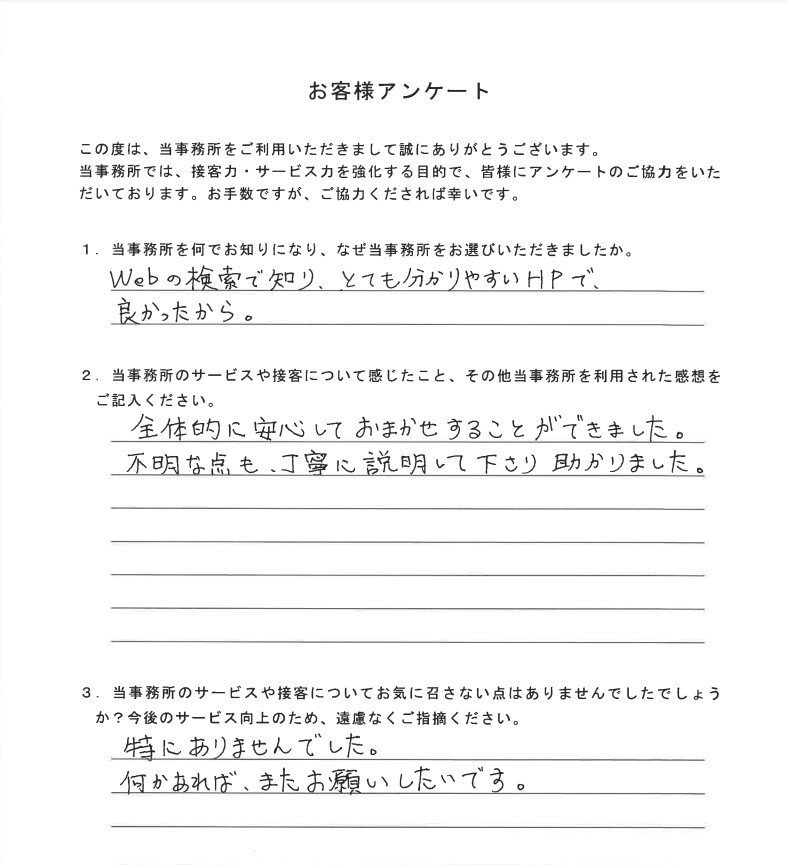 お客様アンケート
この度は、当事務所をご利用いただきまして誠にありがとうございます。
当事務所では、接客力・サービス力を強化する目的で、皆様にアンケートのご協力をいた
だいております。お手数ですが、ご協力くだされば幸いです。
１．当事務所を何でお知りになり、なぜ当事務所をお選びいただきましたか。
Webの検索で知り、とても分かりやすいHPで、
良かったから。
２．当事務所のサービスや接客について感じたこと、その他当事務所を利用された感想を
ご記入ください。
全体的に安心しておまかせすることができました。
不明な点も、丁寧に説明して下さり助かりました。
３．当事務所のサービスや接客についてお気に召さない点はありませんでしたでしょう
か？今後のサービス向上のため、遠慮なくご指摘ください。
特にありませんでした。
何かあれば、またお願いしたいです。